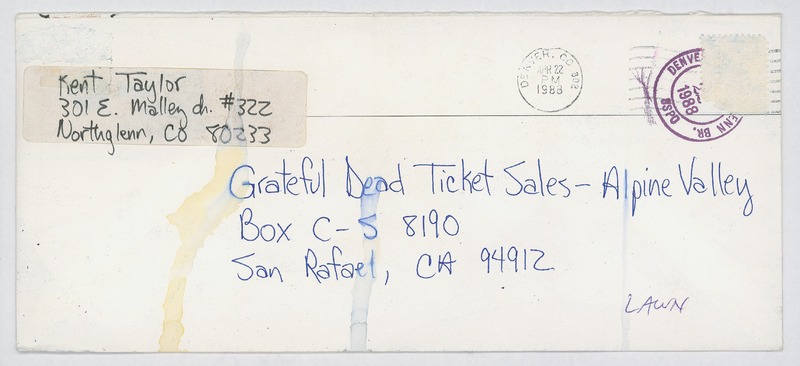 Kent Taylor
301 E. Malley dr. #322
Northglenn, CO 80233
DENVER, CO 802
APR 22
PM
1988
DENVER
1988
USPO
ENN BR.
Grateful Dead Ticket Sales - Alpine Valley
Box C-S 8190
San Rafael, CA 94912
LAWN